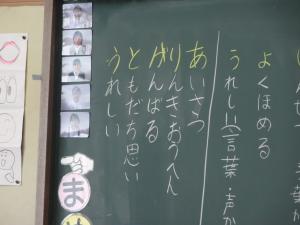 よくほめる
うれしい言葉・声か
あいさつ
りんきおうへん
がんばる
ともだち思い
うれしい
ま